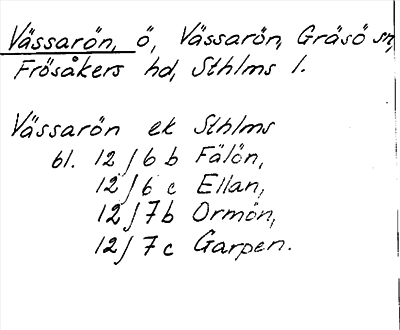 Vässarön, ö, Vässarön, Gräsö sn,
Frösåkers hd, Sthlms l.
Vässarön ek Sthlms
bl. 12 J 6 b Fälön,
12 J 6 c Ellan,
12 J 7 b Ormön,
12 J 7 c Garpen.